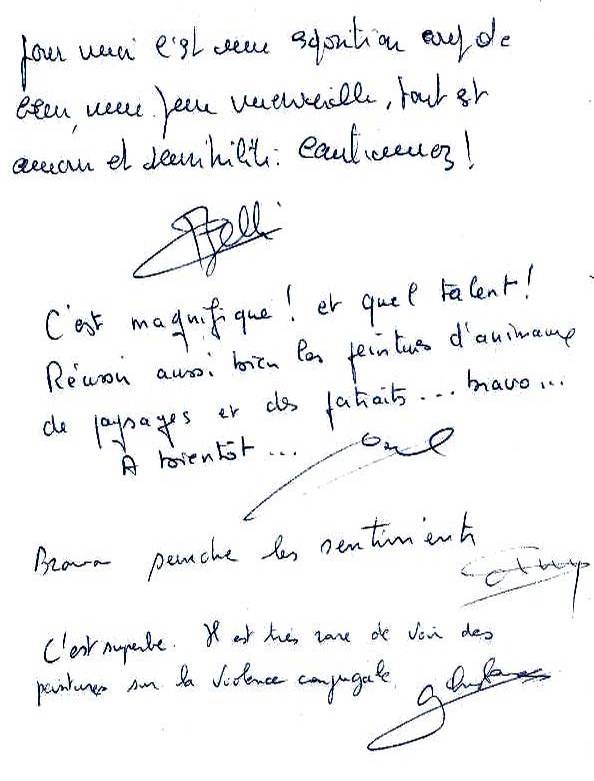 pour moi c'est une
bien, une pure merveille, tout est
amour et sensibilité. Continuez!
C'est magnifique! et quel talent!
Réussir aussi bien les peintures d'animaux
de paysages et des portraits... bravo...
A bientôt...
Bravo les sentiments
C'est superbe. Il est très rare de voir des
peintures sur la violence conjugale.